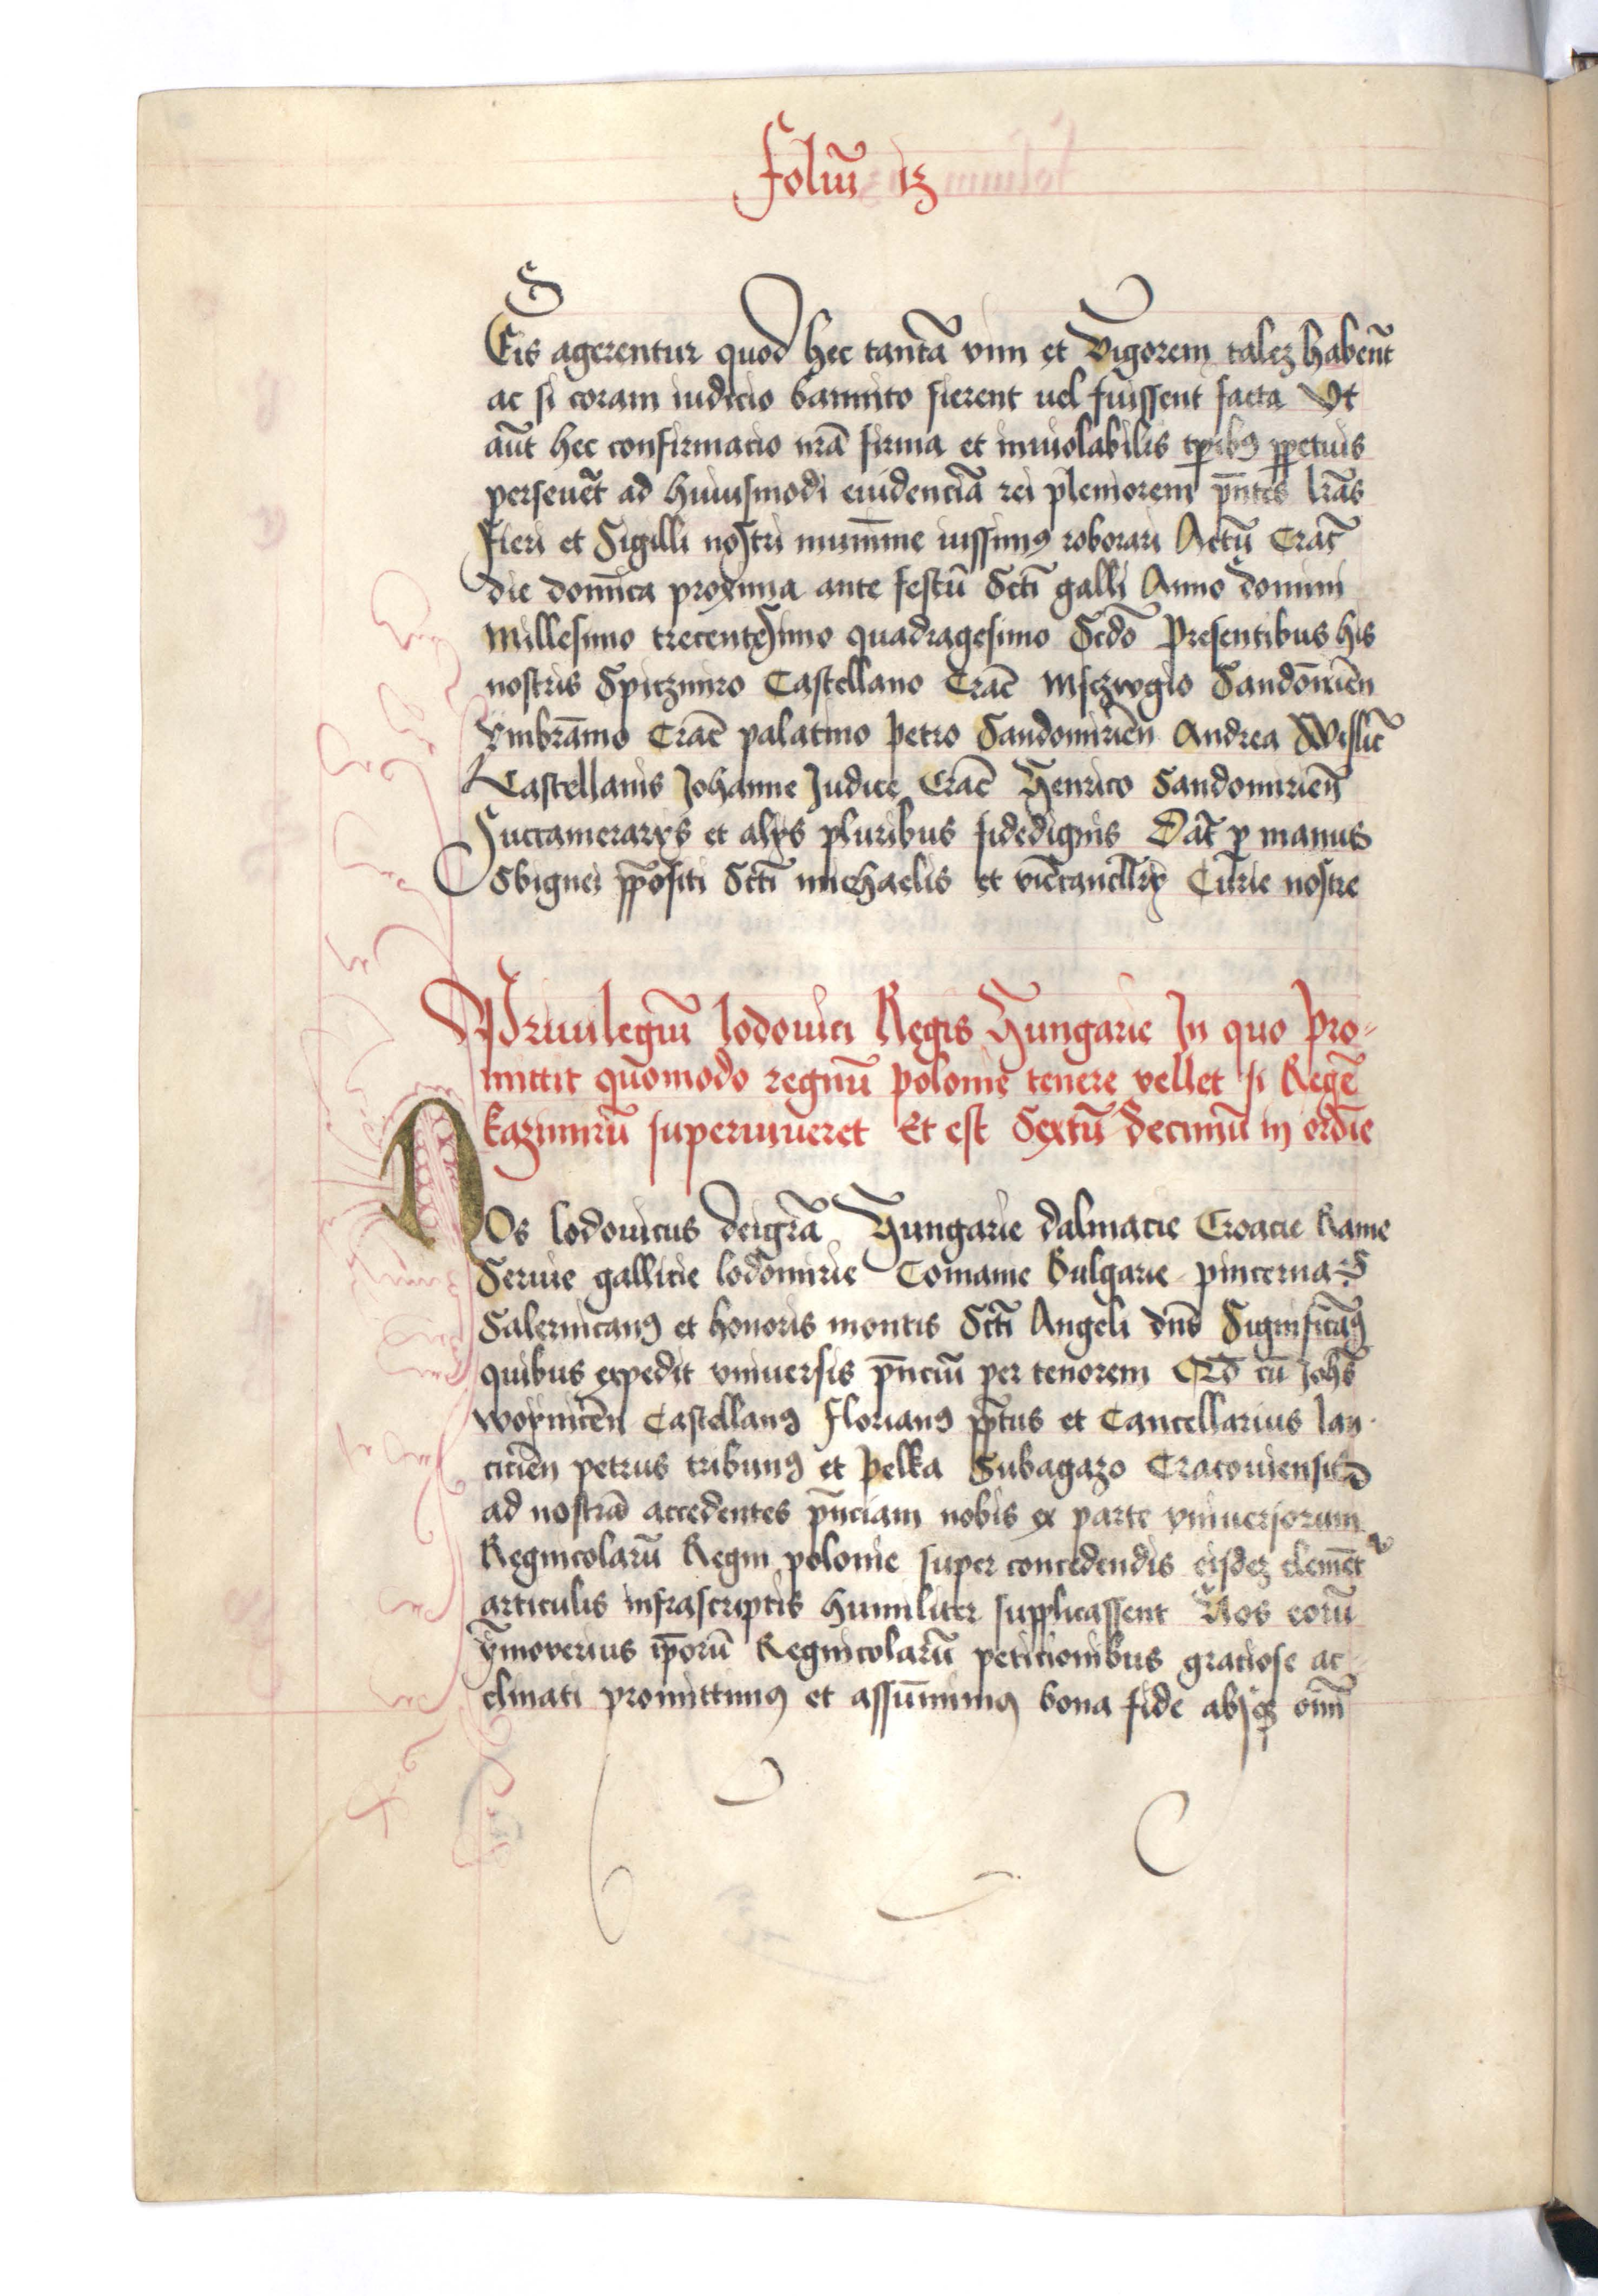 Foliū 13
Eis agerentur quod hec tantā vim et vigorem talez habeūt
ac si coram iudicio bannito fierent uel fuissent facta Vt
aūt hec confirmacio nrā firma et inuiolabilis tꝑibꝫ ꝑpetuis
perseuēt ad huiusmodi euidenciā rei pleniorem pn̄tes lrās
Fieri et Sigilli nostri munīme iussimꝰ roborari Actū Crac̄
die domīca proxima ante festū Scti galli Anno domini
Millesimo trecentesimo quadragesimo Scdō Presentibus his
nostris Spiczmiro Castellano Crac̄ Msczvgio Sandomiriēn
ymbrāmo Crac̄ palatino petro Sandomiriēn Andrea Wislic̄
Castellanis Johanne Judice Crac̄ Henrico Sandomiriēn
Succamerarys et alys pluribus fidedignis Dat̄ ꝑ manus
Sbignei p̄positi Scti michaelis et vicēcancllry Curie nostre
Priuilegiū lodouici Regis Hungarie In quo pro-
mittit quomodo regnū polonie tenere vellet si Regē
kazimirū superuiueret Et est Sextū decimū in ordīe
NOs lodouicus deigrā Hungarie dalmacie Croacie Rame
Seruie gallicie lodomirie Comanie Bulgarie princeps
Salernitanꝰ et honoris montis Scti Angeli dn̄s Significamꝰ
quibus expedit vniuersis pn̄ciū per tenorem Qd̄ cū Johēs
woyniceñ Castellanꝰ Florianꝰ pp̄tus et Cancellarius lan-
ciciēn petrus tribunꝰ et pelka Subagazo Cracouiensis
ad nostrā accedentes pn̄ciam nobis ex parte vniuersorum
Regnicolarū Regni polonie super concedendis eisdez clemēt̄
articulis infrascriptis humiliter supplicassent Nos eorū
ymoverius ip̄orū Regnicolarū peticionibus graciose ac-
clinati promittimꝰ et assūmimꝰ bona fide absqꝫ omī